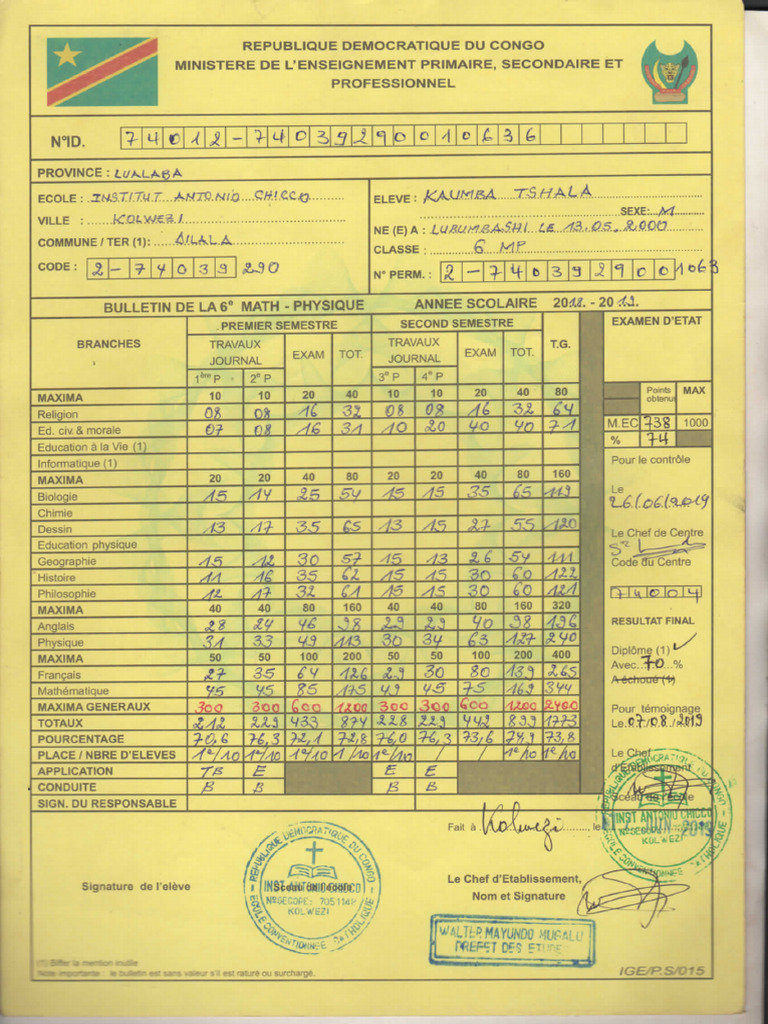 REPUBLIQUE DEMOCRATIQUE DU CONGO
MINISTERE DE L'ENSEIGNEMENT PRIMAIRE, SECONDAIRE ET
PROFESSIONNEL
N°ID. 74012-74039290010636
PROVINCE : LUALABA
ECOLE : INSTITUT ANTONIO CHICCO
VILLE : KOLWEZI
COMMUNE / TER (1): DILALA
CODE : 2-74039 290
ELEVE : KAUMBA TSHALA
SEXE: M
NE (E) A : LUBUMBASHI LE 13.05.2000
CLASSE : 6 MP
N° PERM. : 2-7403929001063
BULLETIN DE LA 6e MATH - PHYSIQUE ANNEE SCOLAIRE 2018 - 2019.
BRANCHES PREMIER SEMESTRE SECOND SEMESTRE T.G. EXAMEN D'ETAT
TRAVAUX JOURNAL EXAM TOT. TRAVAUX JOURNAL EXAM TOT.
1ère P 2e P 3e P 4e P
MAXIMA 10 10 20 40 10 10 20 40 80
Religion 08 08 16 32 08 08 16 32 64
Ed. civ. & morale 07 08 16 31 10 20 40 40 71
Education à la Vie (1)
Informatique (1)
MAXIMA 20 20 40 80 20 20 40 80 160
Biologie 15 14 25 54 15 15 35 65 119
Chimie
Dessin 13 17 35 65 13 15 27 55 120
Education physique
Geographie 15 12 30 57 15 13 26 54 111
Histoire 11 16 35 62 15 15 30 60 122
Philosophie 12 17 32 61 15 15 30 60 121
MAXIMA 40 40 80 160 40 40 80 160 320
Anglais 28 24 46 98 29 29 40 98 196
Physique 31 33 49 113 30 34 63 127 240
MAXIMA 50 50 100 200 50 50 100 200 400
Français 27 35 64 126 29 30 80 139 265
Mathématique 45 45 85 175 49 45 75 169 344
MAXIMA GENERAUX 300 300 600 1200 300 300 600 1200 2400
TOTAUX 212 229 433 874 228 229 442 899 1773
POURCENTAGE 70,6 76,3 72,1 72,8 76,0 76,3 73,6 74,9 73,8
PLACE / NBRE D'ELEVES 1e/10 1e/10 1e/10 1/10 1e/10 / / 1e/10 1e/10
APPLICATION TB E E E
CONDUITE B B B B
SIGN. DU RESPONSABLE
Points obtenus MAX
M.EC 738 1000
% 74
Pour le contrôle
Le
26/06/2019
Le Chef de Centre
Code du Centre
74004
RESULTAT FINAL
Diplôme (1) ✓
Avec 70 %
A échoué (1)
Pour témoignage
Le 07/08/2019
Le Chef
d'Etablissement
Sceau de l'école
REPUBLIQUE DEMOCRATIQUE DU CONGO
INST ANTONIO CHICCO
KOLWEZI
ECOLE CONVENTIONNEE CATHOLIQUE
JUN 2019
Fait à Kolwezi, le
Signature de l'elève
REPUBLIQUE DEMOCRATIQUE DU CONGO
INST ANTONIO CHICCO
Sceau de l'école
N°SECOPE: 7051142
KOLWEZI
ECOLE CONVENTIONNEE CATHOLIQUE
Le Chef d'Etablissement,
Nom et Signature
WALTER MAYUNDO MUGALU
PREFET DES ETUDES
(1) Biffer la mention inutile
Note importante : le bulletin est sans valeur s'il est raturé ou surchargé.
IGE/P.S/015